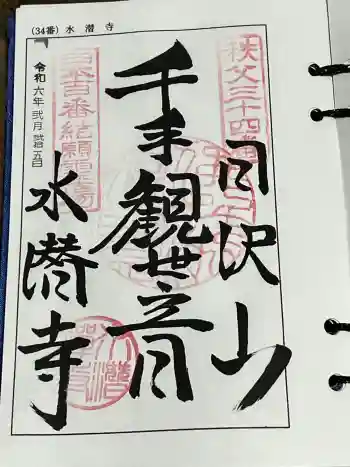 (34番) 水潜寺
秩父三十四番
日沢山
千手観世音
日本百番結願霊場
水潜寺
令和六年弐月